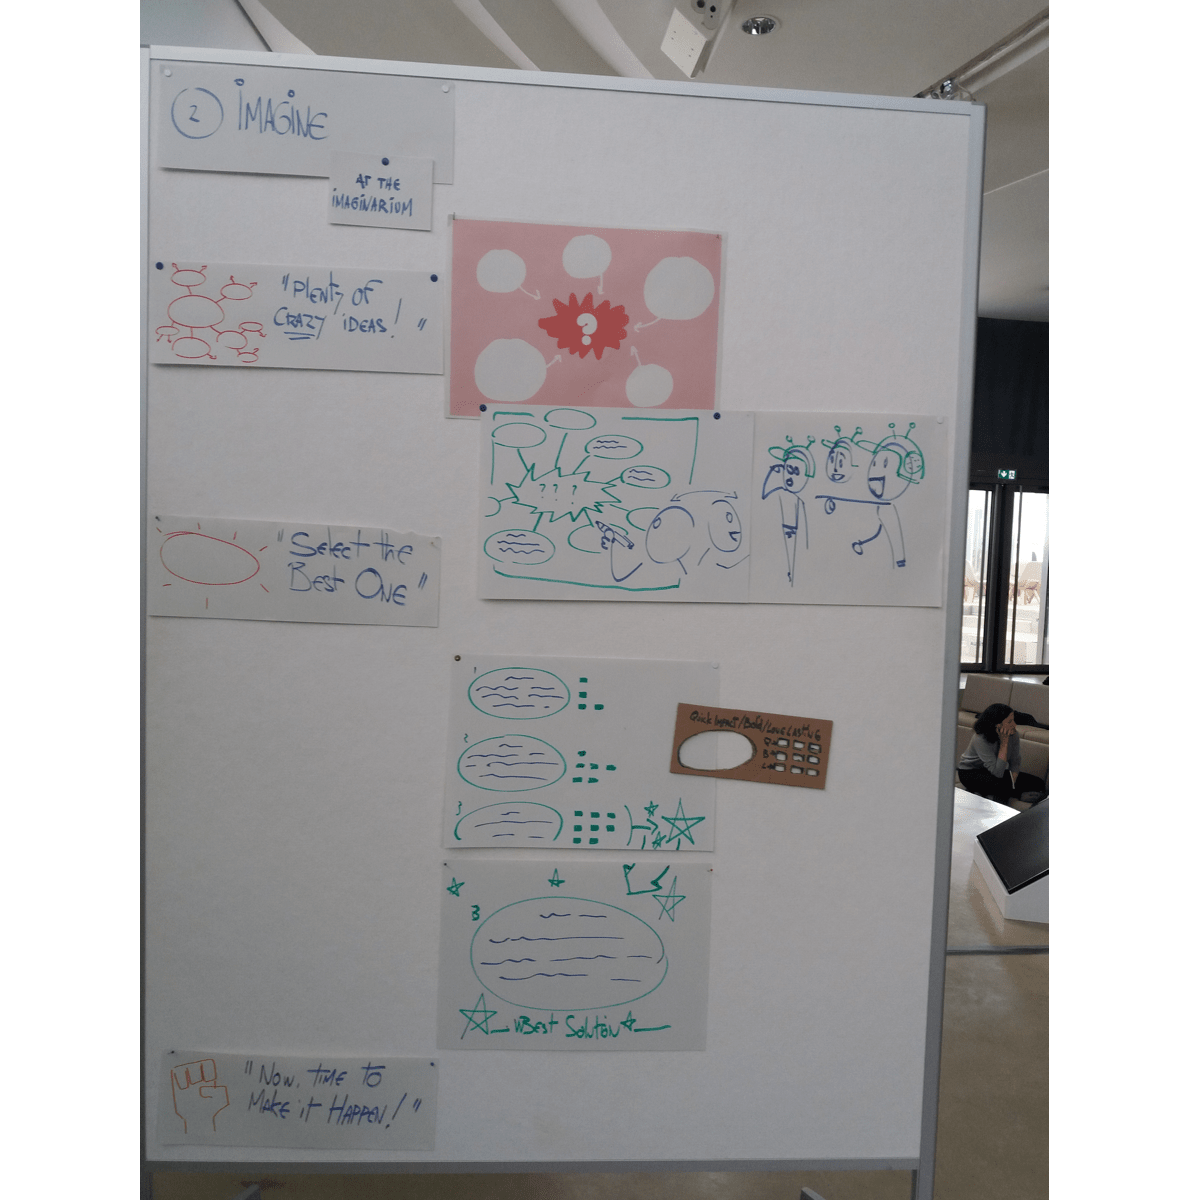 2 IMAGINE
AT THE
IMAGINARIUM
"PLENTY OF
CRAZY IDEAS! "
?
? ? ?
"SELECT THE
BEST ONE"
1
2
3
Quick Impact/Bold/Long LASTING
Q
B
L
3
Best Solution
"NOW, TIME TO
MAKE IT HAPPEN!"